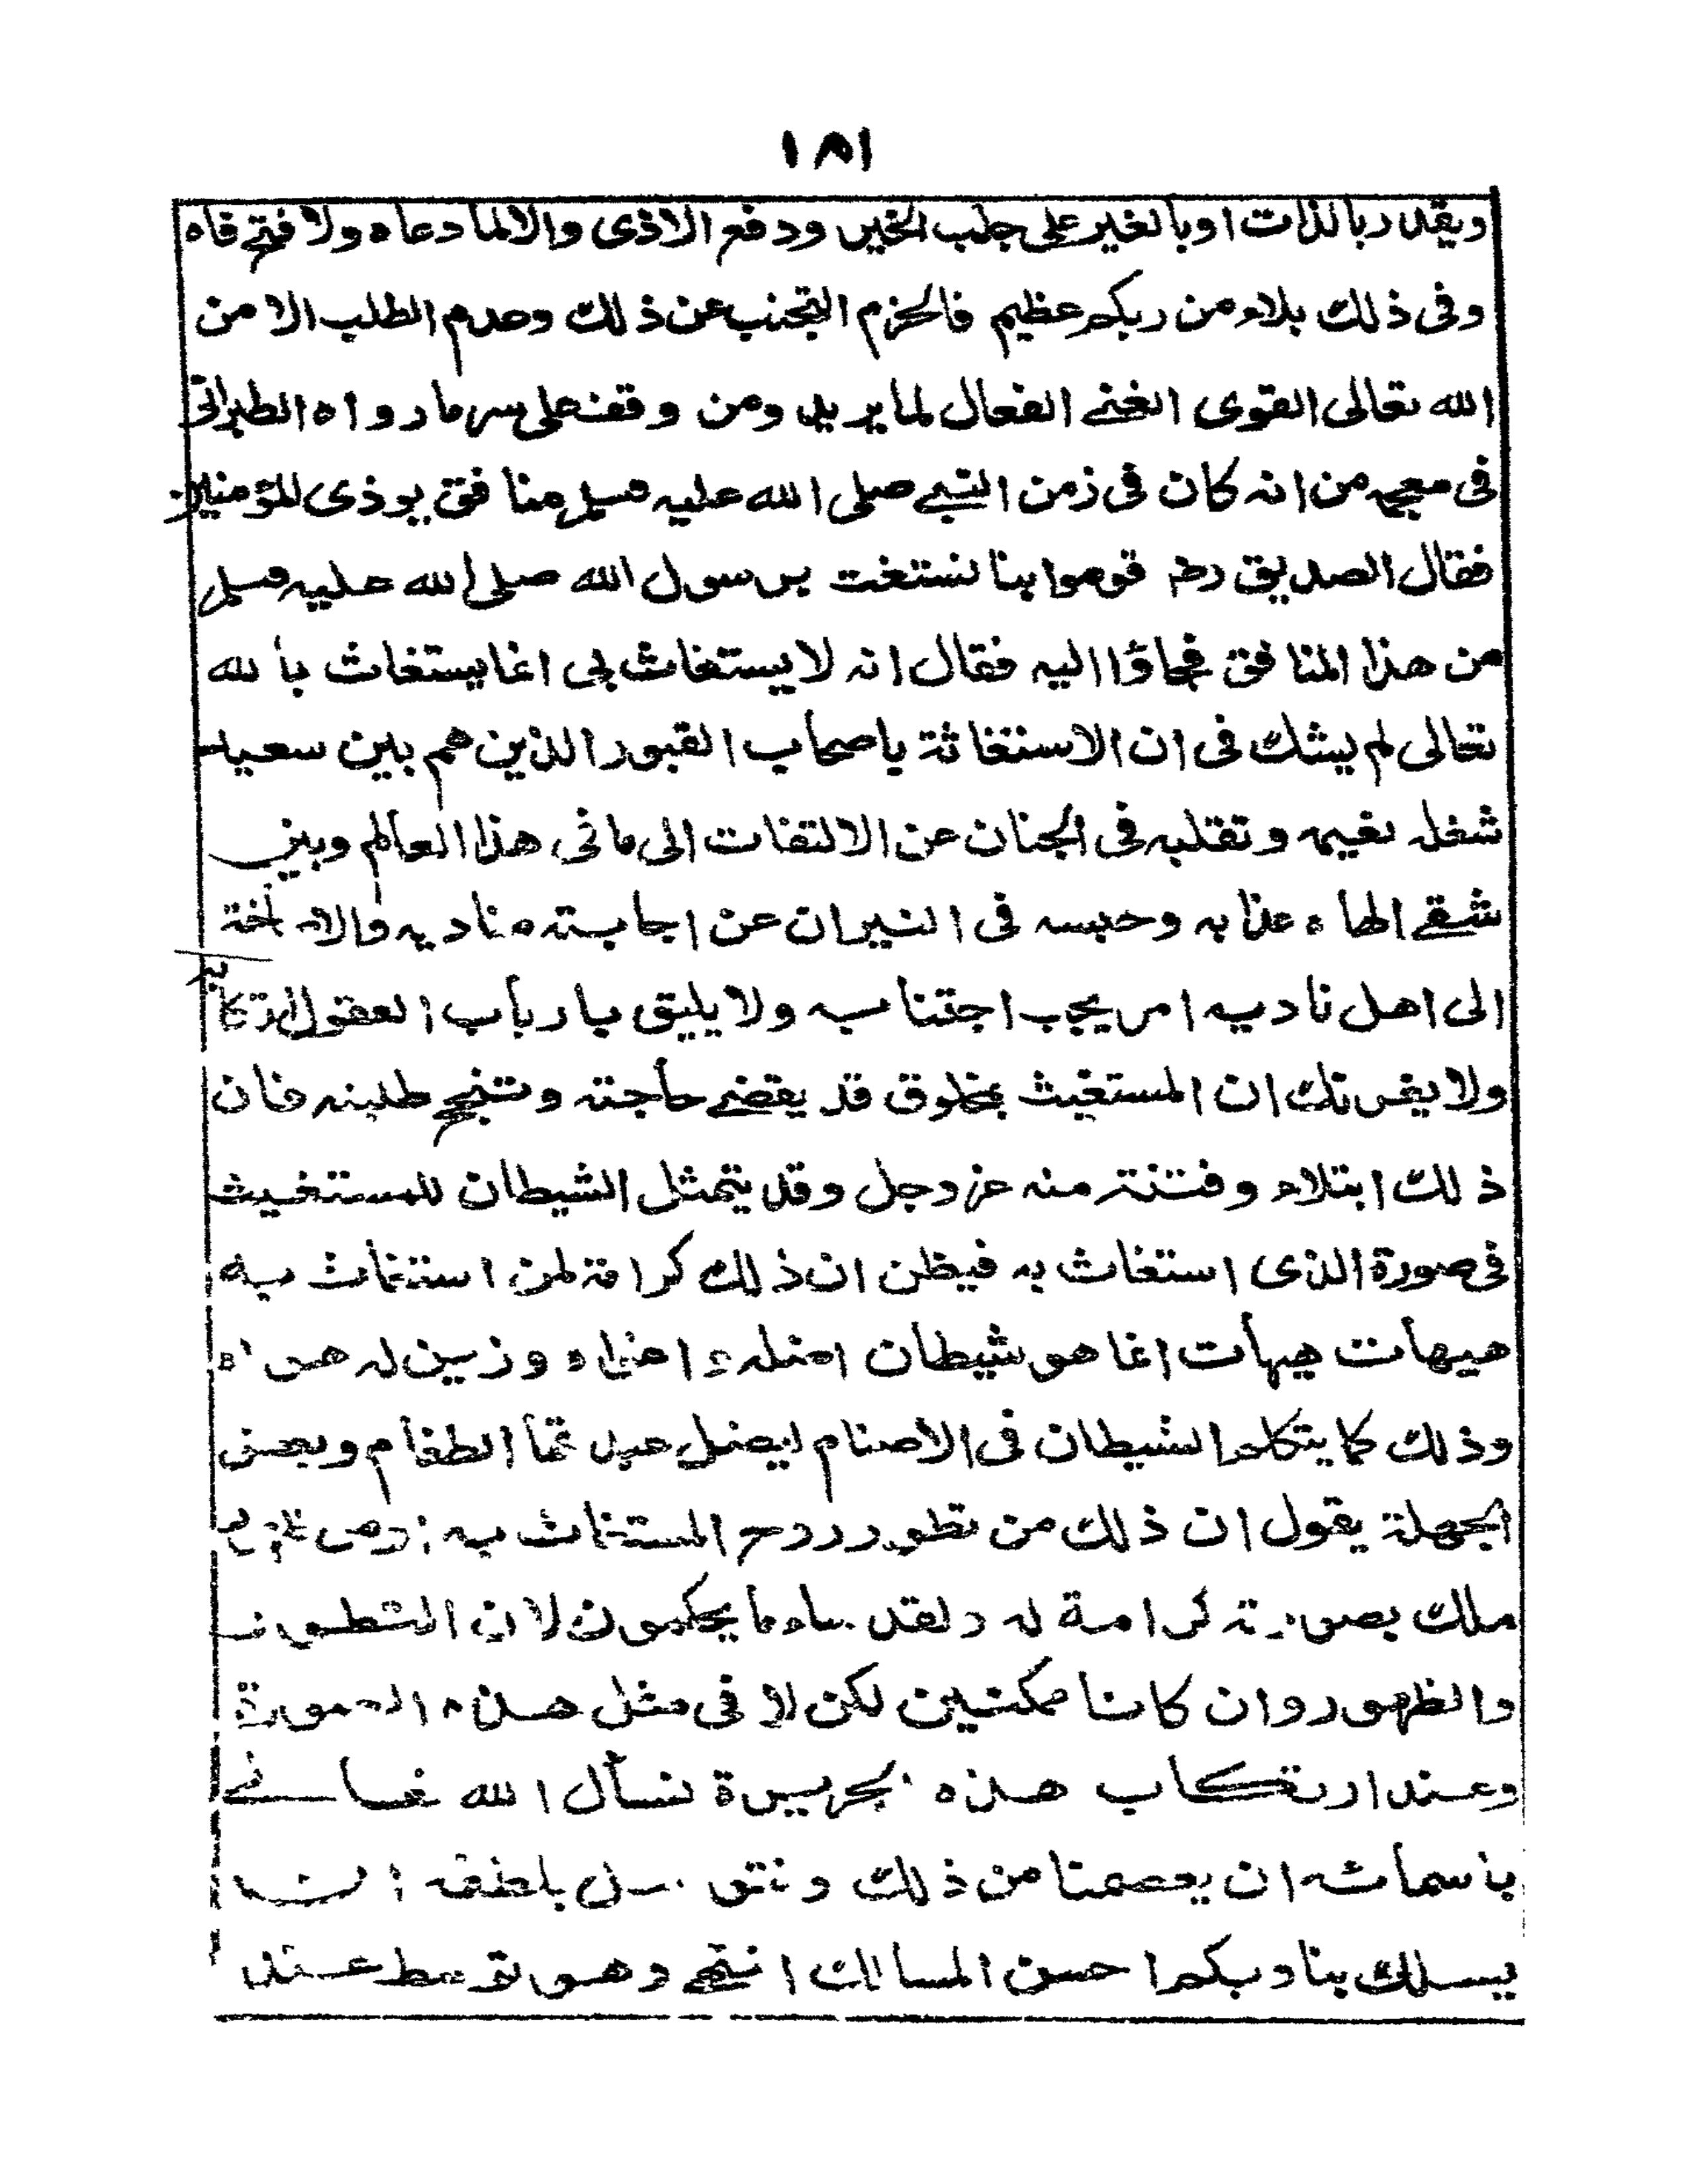 ١٨١
ويقدر بالذات او بالغير على جلب الخير ودفع الاذى والا لما دعاه ولا فتح فاه
وفى ذلك بلاء من ربكم عظيم فالحزم التجنب عن ذلك وعدم الطلب الا من
الله تعالى القوى الغنى الفعال لما يريد ومن وقف على سر ما رواه الطبرانى
فى معجمه من انه كان فى زمن النبى صلى الله عليه وسلم منافق يوذى المؤمنين
فقال الصديق رض قوموا بنا نستغث برسول الله صلى الله عليه وسلم
من هذا المنافق فجاؤا اليه فقال انه لا يستغاث بى انما يستغاث بالله
تعالى لم يشك فى ان الاستغاثة باصحاب القبور الذين هم بين سعيد
شغله نعيمه وتقلبه فى الجنان عن الالتفات الى ما فى هذا العالم وبين
شقى الهاه عذابه وحبسه فى النيران عن اجابته مناديه والاصاخة
الى اهل ناديه امر يجب اجتنابه ولا يليق بارباب العقول ارتكابه
ولا يغرنك ان المستغيث بمخلوق قد يقضى حاجته وتنجح طلبته فان
ذلك ابتلاء وفتنة منه عز وجل وقد يتمثل الشيطان للمستغيث
فى صورة الذى استغاث به فيظن ان ذلك كرامة لمن استغاث به
هيهات هيهات انما هو شيطان اضله واغواه وزين له هواه
وذلك كما يتكلم الشيطان فى الاصنام ليضل عبدتها الطغام وبعض
الجهلة يقول ان ذلك من تطور روح المستغاث به او من
ملك بصورته كرامة له ولقد ساء ما يحكمون لان التطور
والظهور وان كانا ممكنين لكن لا فى مثل هذه الصورة
وعند ارتكاب هذه الجريرة نسأل الله تعالى
باسمائه ان يعصمنا من ذلك ونتوسل بلطفه ان
يسلك بنا وبكم احسن المسالك انتهى وهو توسط عند